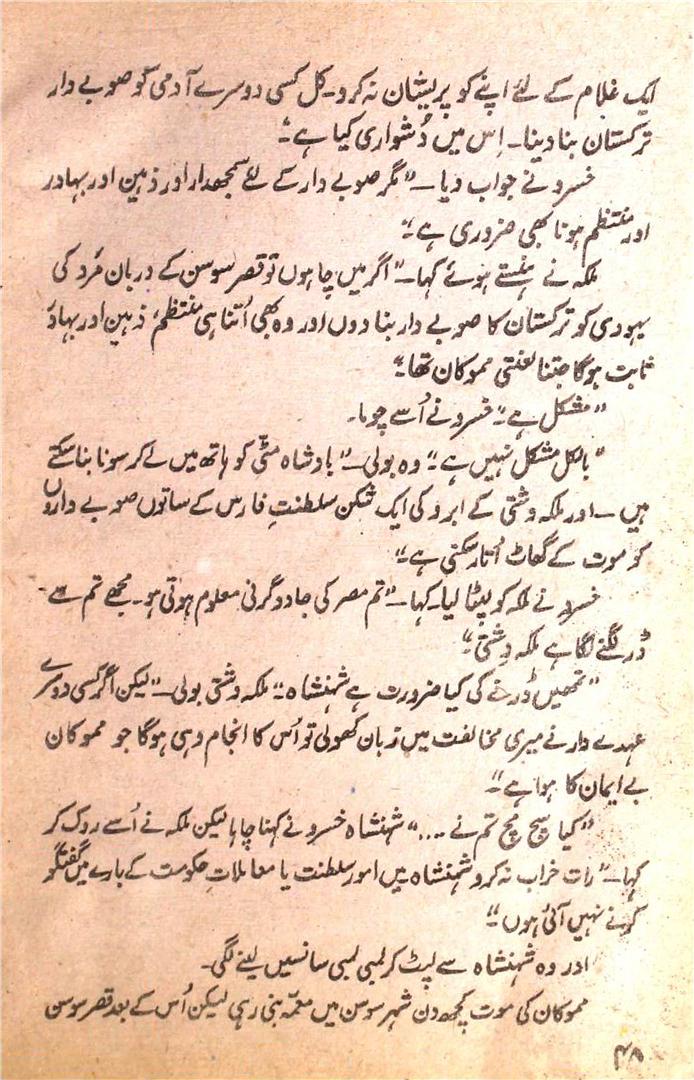 ایک غلام کے لئے اپنے کو پریشان نہ کرو۔ کل کسی دوسرے آدمی کو صوبے دار
ترکستان بنا دینا۔ اِس میں دُشواری کیا ہے؟“
خسرو نے جواب دیا۔ ”مگر صوبے دار کے لئے سمجھدار اور ذہین اور بہادر
اور منتظم ہونا بھی ضروری ہے۔“
ملکہ نے ہنستے ہوئے کہا۔ ”اگر میں چاہوں تو قصرِ سوسن کے دربان مُرد کی
یہودی کو ترکستان کا صوبے دار بنا دوں اور وہ بھی اُتنا ہی منتظم، ذہین اور بہادر
ثابت ہوگا جتنا لعنتی مموکان تھا۔“
”مشکل ہے۔“ خسرو نے اُسے چوما۔
”بالکل مشکل نہیں ہے۔“ وہ بولی۔ ”بادشاہ مٹی کو ہاتھ میں لے کر سونا بنا سکتے
ہیں۔ اور ملکہ وشتی کے ابرو کی ایک شکن سلطنتِ فارس کے ساتوں صوبے داروں
کو موت کے گھاٹ اُتار سکتی ہے۔“
خسرو نے ملکہ کو لپٹا لیا۔ کہا۔ ”تم مصر کی جادوگرنی معلوم ہوتی ہو۔ مجھے تم سے
ڈر لگنے لگا ہے ملکہ وشتی۔“
”تمھیں ڈرنے کی کیا ضرورت ہے شہنشاہ۔“ ملکہ وشتی بولی۔ ”لیکن اگر کسی دوسرے
عہدے دار نے میری مخالفت میں زبان کھولی تو اُس کا انجام وہی ہوگا جو مموکان
بے ایمان کا ہوا ہے۔“
”کیا سچ مچ تم نے ....“ شہنشاہ خسرو نے کہنا چاہا لیکن ملکہ نے اُسے روک کر
کہا۔ ”رات خراب نہ کرو شہنشاہ میں امورِ سلطنت یا معاملاتِ حکومت کے بارے میں گفتگو
کرنے نہیں آئی ہوں۔“
اور وہ شہنشاہ سے لپٹ کر لمبی لمبی سانسیں لینے لگی۔
مموکان کی موت کچھ دن شہر سوسن میں معمّہ بنی رہی لیکن اُس کے بعد قصرِ سوسن
۴۸